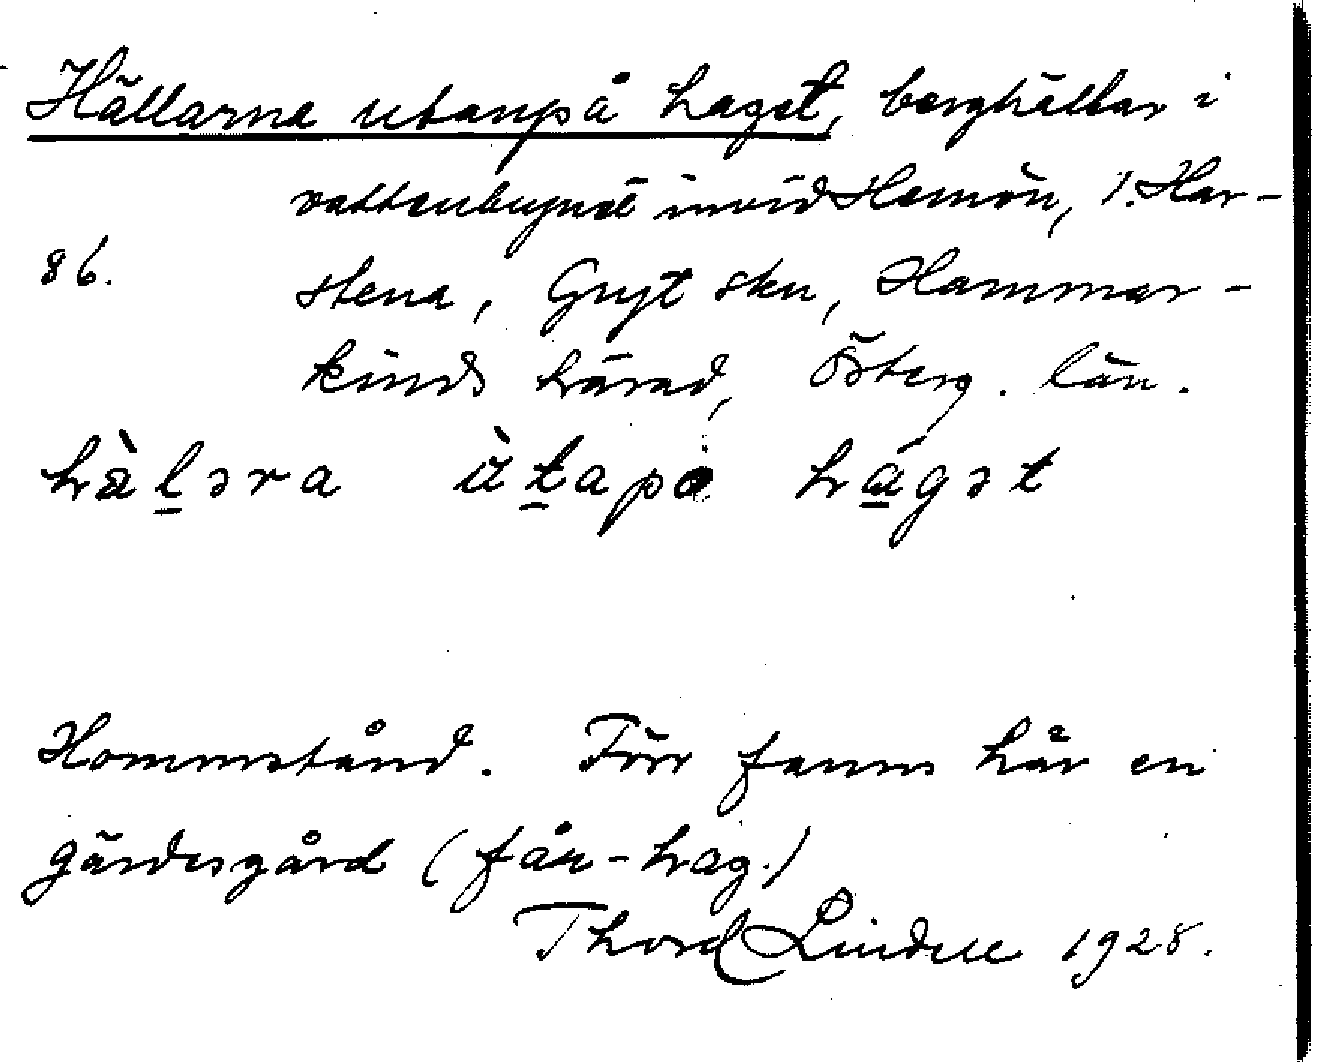 Hällarna utanpå haget, berghällar i
vattenbrynet invid Hamön, 1. Har-
86.
stena, Gryt skn, Hammar-
kinds härad, Österg. län.
hàl̠əra ùt̠apo ha̠gət
Hommstånd. Förr fanns här en
gärdesgård (får-hag.)
Thord Lindell 1928.